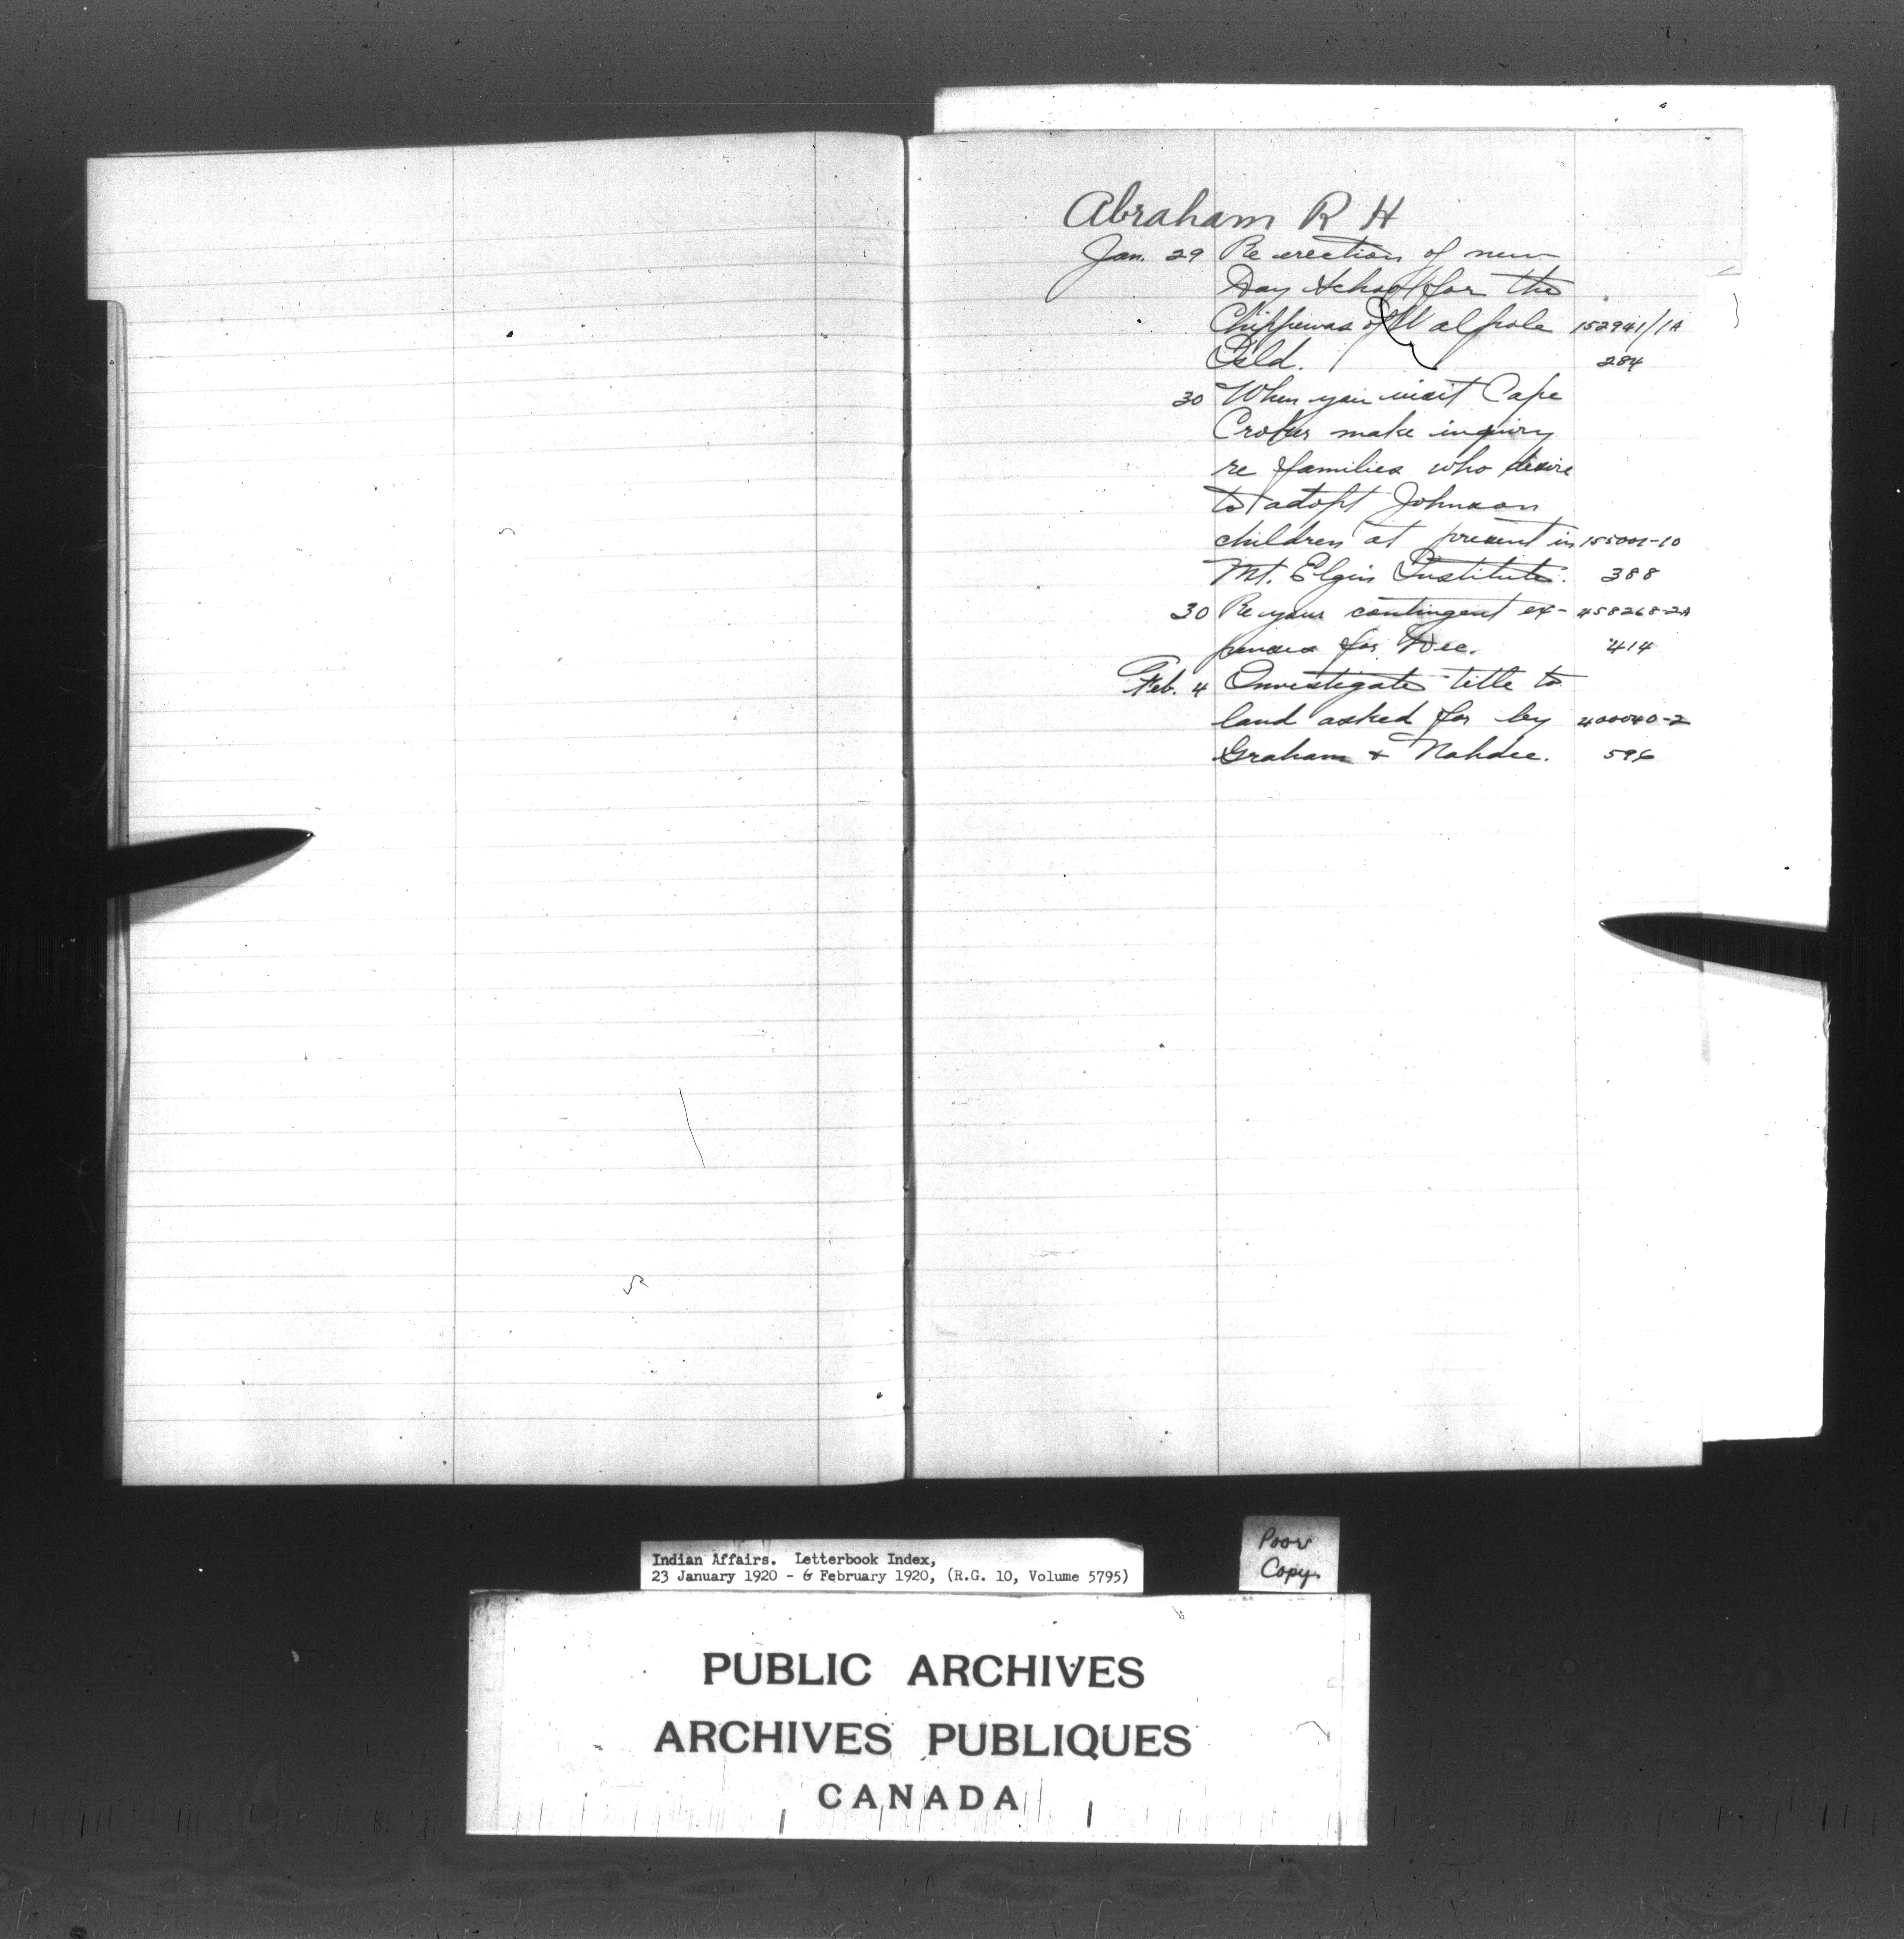 Abraham R H
Jan. 29 Re erection of new
Day School for the
Chippewas of Walpole 152941/1A
Isld. 284
30 When you visit Cape
Croker make inquiry
re families who desire
to adopt Johnson
children at present in 155001-10
Mt. Elgin Institute. 388
30 Re your contingent ex- 458268-2A
penses for Dec. 414
Feb. 4 Investigate title to
land asked for by 400040-2
Graham & Nahdee. 596
Indian Affairs. Letterbook Index,
23 January 1920 - 6 February 1920, (R.G. 10, Volume 5795)
Poor
Copy
PUBLIC ARCHIVES
ARCHIVES PUBLIQUES
CANADA